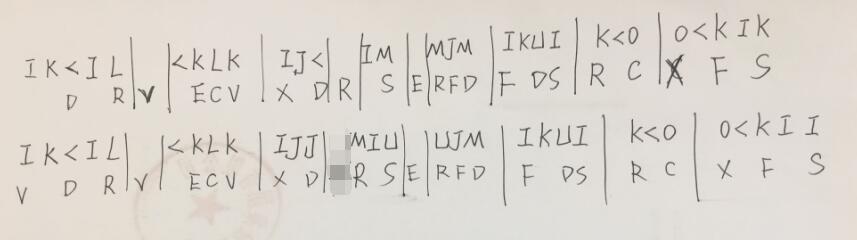 I K < I L | | < K L K | I J < | | I M | | M J M | I K U I | K < O | O < K I K
D R | V | E C V | X D | R | S | E | R F D | F D S | R C | X F S
I K < I L | | < K L K | I J J | M I U | | U J M | I K U I | K < O | O < K I I
V D R | V | E C V | X D | R S | E | R F D | F D S | R C | X F S